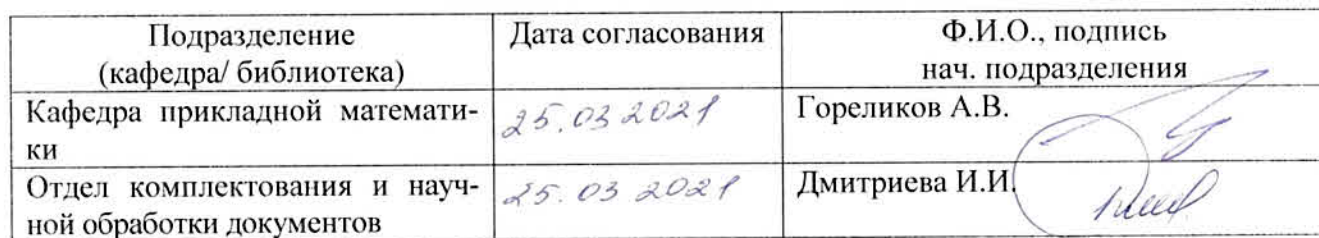 Подразделение
(кафедра/ библиотека)
Дата согласования
Ф.И.О., подпись
нач. подразделения
Кафедра прикладной математи-
ки
25.03 2021
Гореликов А.В.
Отдел комплектования и науч-
ной обработки документов
25.03 2021
Дмитриева И.И.